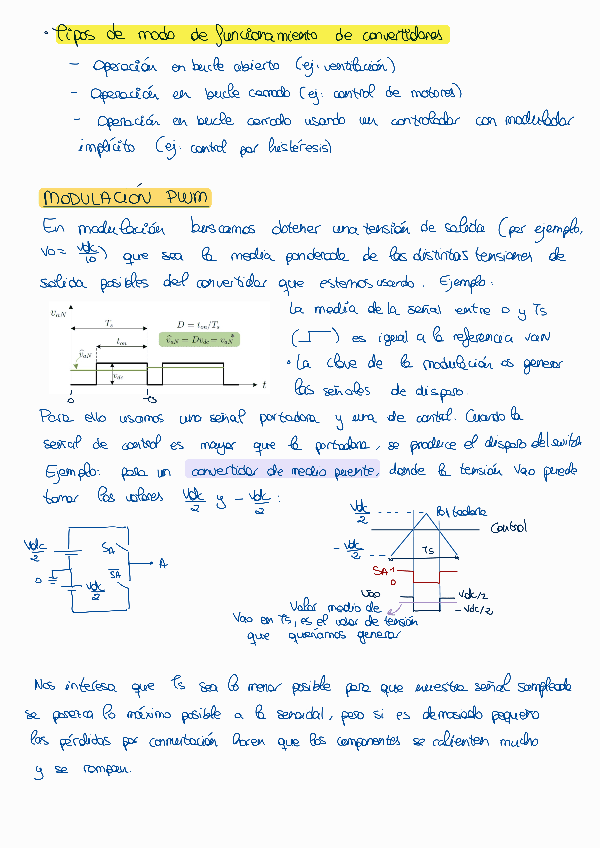 · Tipos de modo de funcionamiento de convertidores
- Operación en bucle abierto (ej: ventilación)
- Operación en bucle cerrado (ej: control de motores)
- Operación en bucle cerrado usando un controlador con modulador
implícito (ej: control por histéresis)
MODULACIÓN PWM
En modulación buscamos obtener una tensión de salida (por ejemplo,
Vo = Vdc/10) que sea la media ponderada de las distintas tensiones de
salida posibles del convertidor que estemos usando. Ejemplo:
v_aN
T_s
D = t_on/T_s
t_on
v̄_aN = Dv_dc = v_aN*
v̄_aN
v_dc
t
0
Ts
La media de la señal entre 0 y Ts
( ) es igual a la referencia vaN
· La clave de la modulación es generar
las señales de disparo.
Para ello usamos una señal portadora y una de control. Cuando la
señal de control es mayor que la portadora, se produce el disparo del switch
Ejemplo: para un convertidor de medio puente, donde la tensión Vao puede
tomar los valores Vdc/2 y -Vdc/2:
Vdc/2
SA
0
A
S̅A̅
Vdc/2
Vdc/2
Portadora
Control
-Vdc/2
Ts
SA 1
0
Vao
Vdc/2
-Vdc/2
Valor medio de
Vao en Ts, es el valor de tensión
que queríamos generar
Nos interesa que Ts sea lo menor posible para que nuestra señal sampleada
se parezca lo máximo posible a la senoidal, pero si es demasiado pequeño
las pérdidas por conmutación hacen que los componentes se calienten mucho
y se rompan.